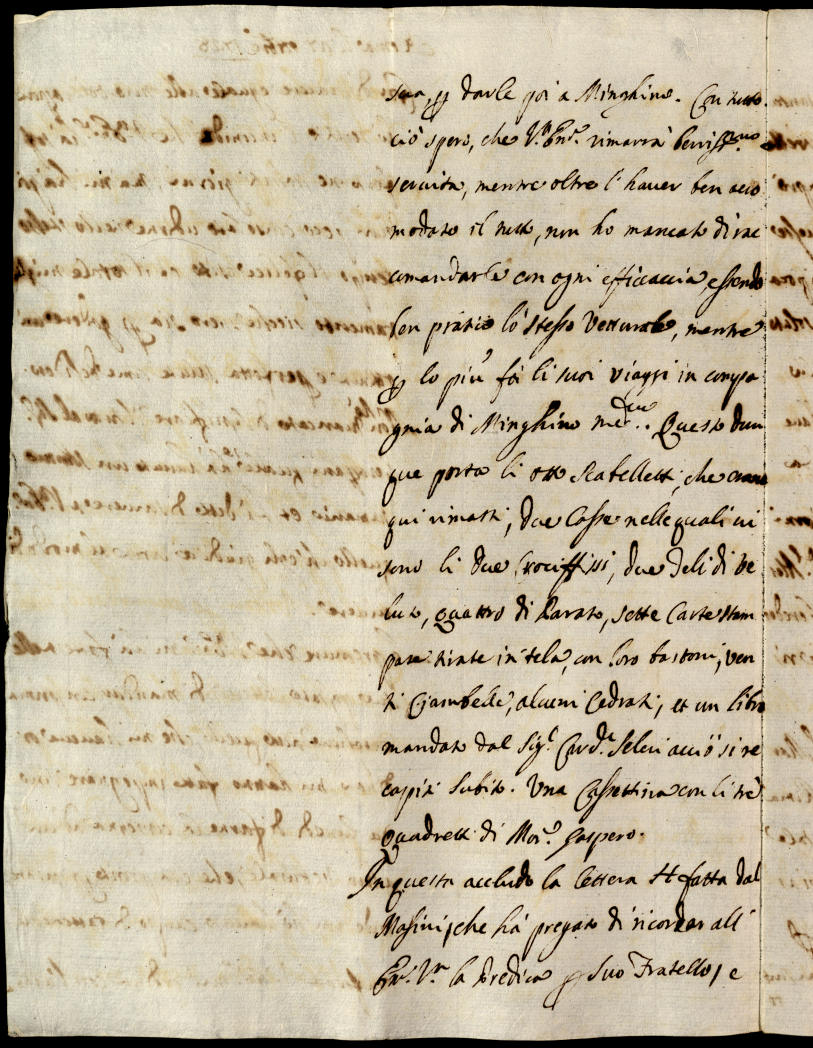 sua, p darle poi a Minghino. Con tutto
ciò spero, che V.ra Em.a rimarrà beniss.mo
servita, mentre oltre l'haver ben acco
modato il tutto, non ho mancato di rac
comandarla con ogni efficaccia, essendo
ben pratico lo stesso Vetturale, mentre
p lo più fà li suoi viaggi in compa
gnia di Minghino med.mo. Questo dun
que porta li otto Scabelletti, che erano
qui rimasti, due Casse nelle quali ui
sono li due Crociffissi, due Teli di Ve
luto, quattro di Parato, sette Carte stam
pate tirate in tela, con loro bastoni, ven
ti Ciambelle, alcuni Cedrati, et un libro
mandato dal Sig.r Card.le Seleri acciò si re
capiti subito. Una Cassettina con li trè
quadretti di Mon.r Gaspero.
In questa accludo la lettera fatta dal
Masini, che hà pregato di ricordar all'
Em.a V.ra la Predica p suo Fratello, e